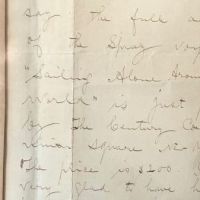 say the full a
of the Spray voy
"Sailing Alone Aroun
World" is just
by The Century Co
Union Square N
The price is $200.
very glad to have h